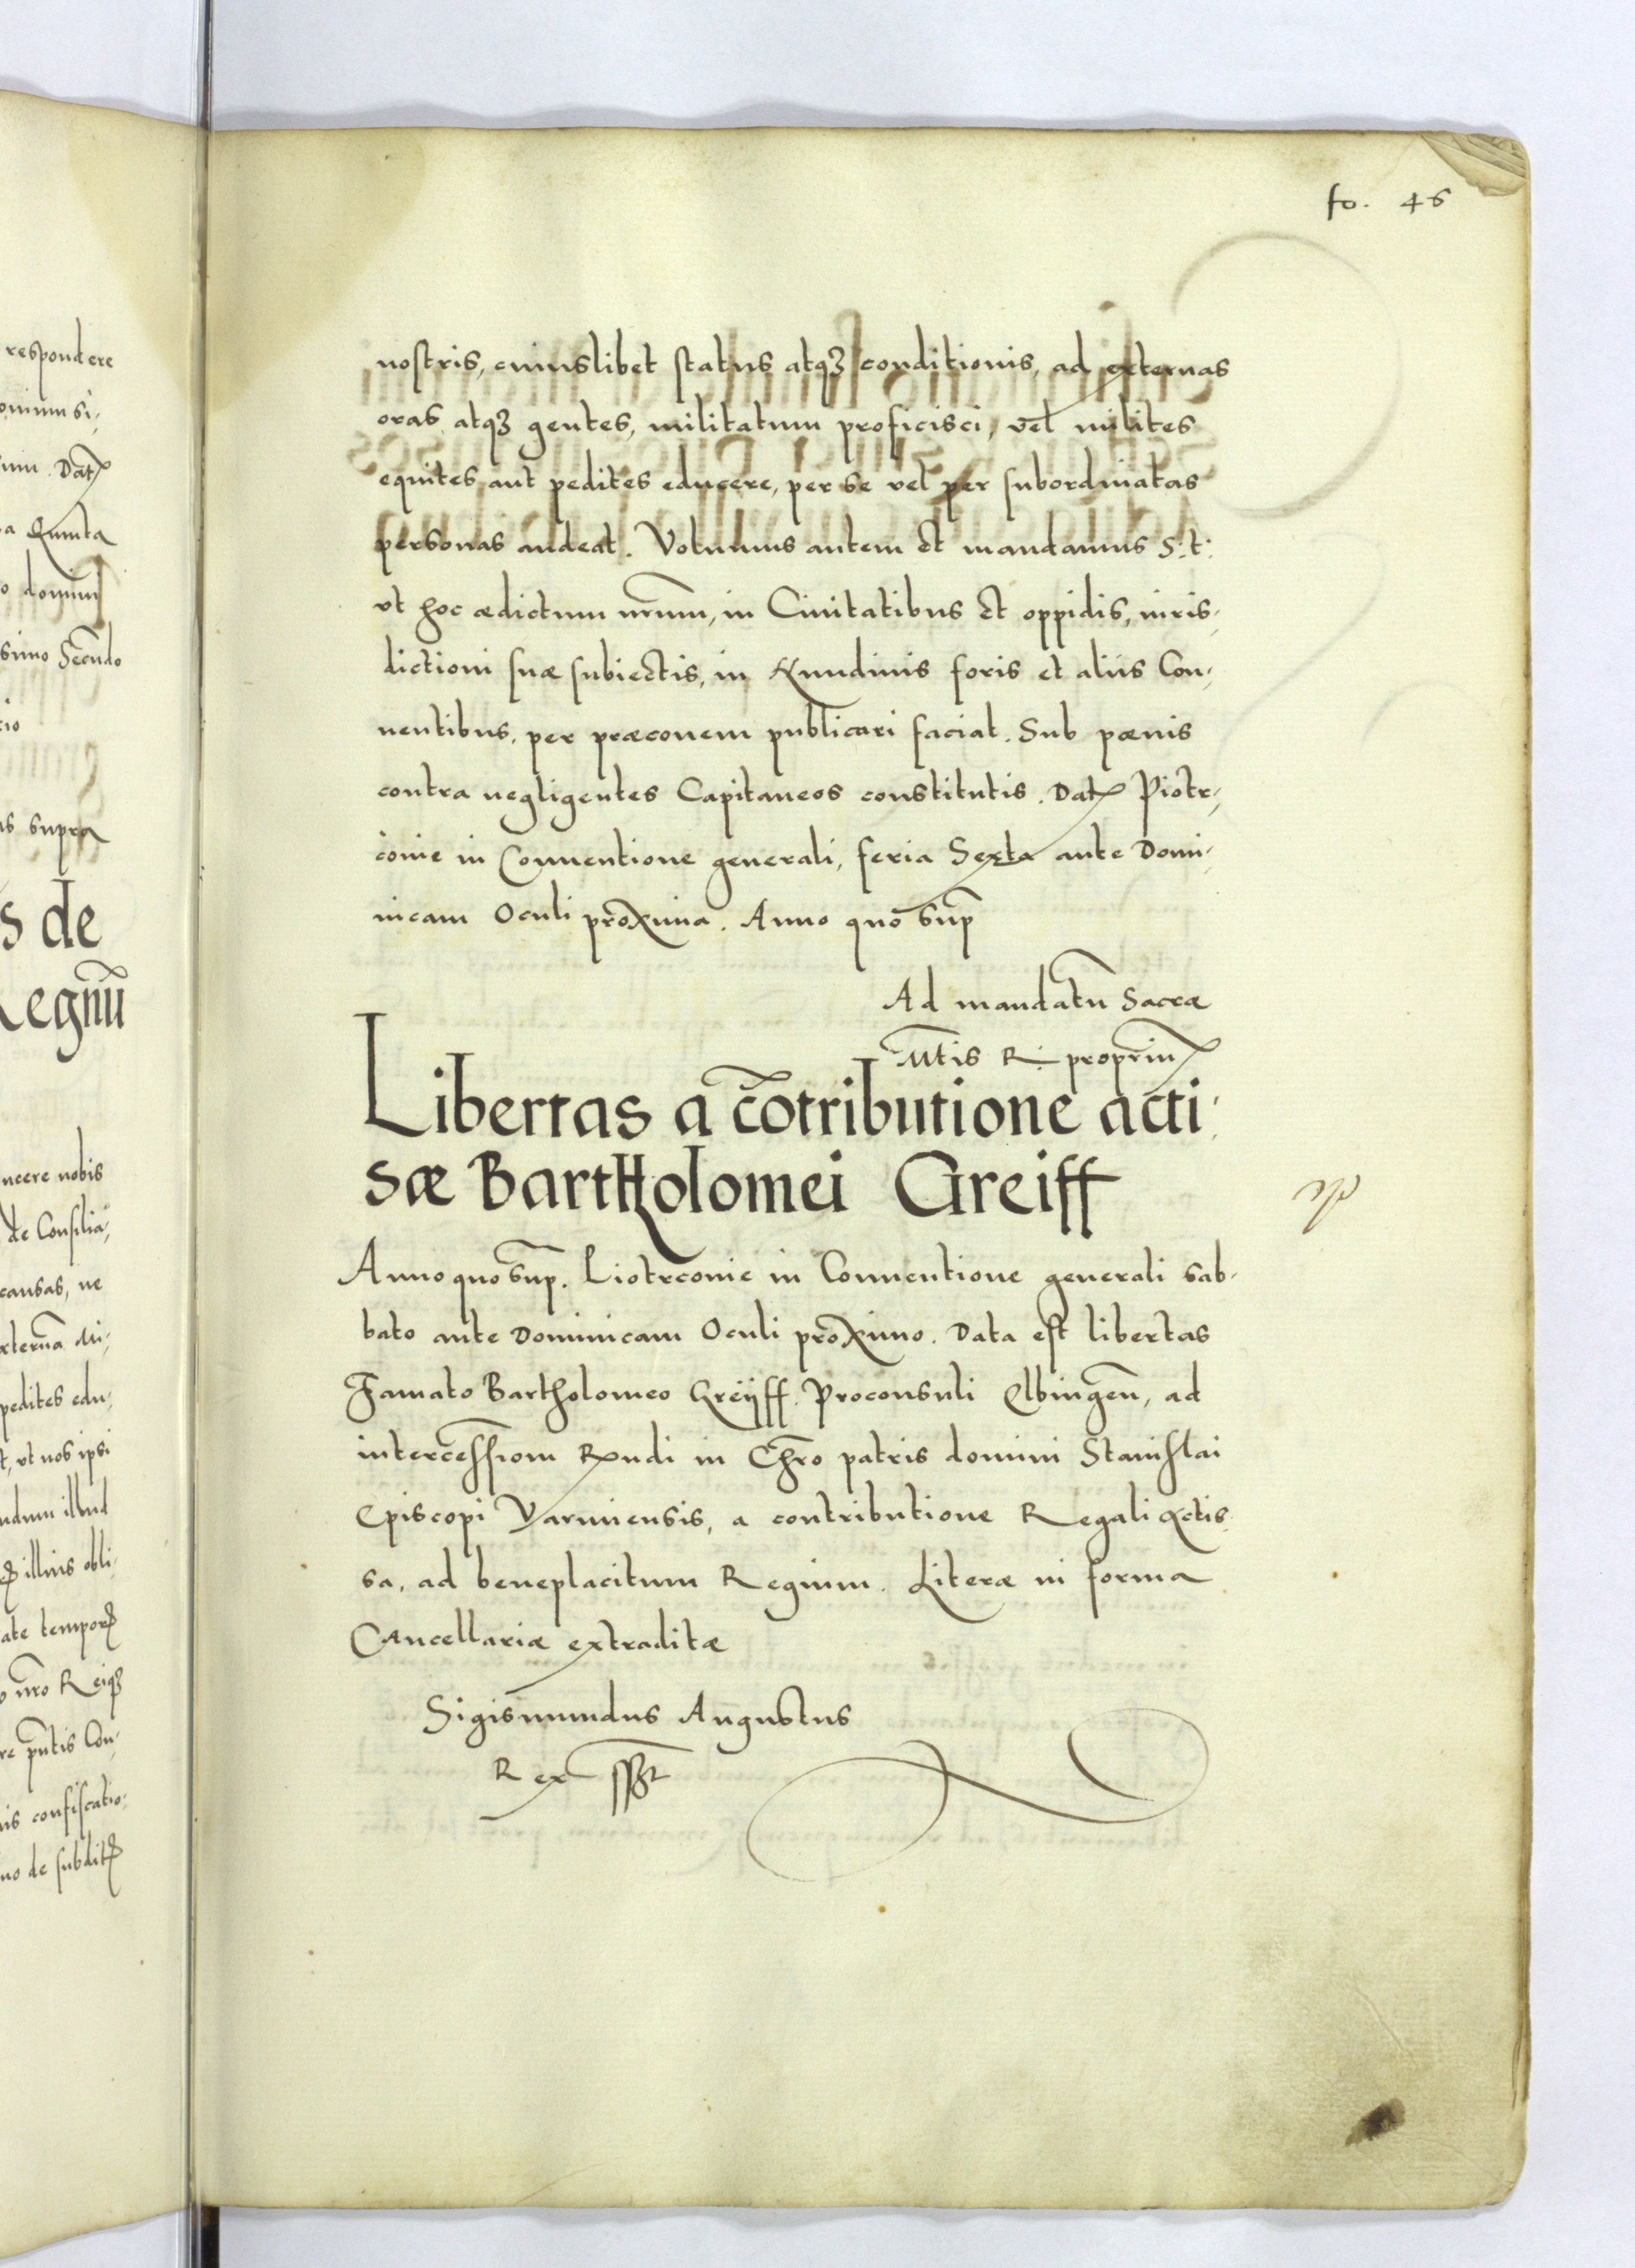 fo. 46
nostris, cuiuslibet status atqȝ conditionis, ad externas
oras atqȝ gentes, militatum proficisci, vel milites
equites aut pedites educere, per se vel per subordinatas
personas audeat. Volumus autem et mandamus S: t:
vt hoc ædictum nr̃um, in Ciuitatibus et oppidis, iuris,
dictioni suæ subiectis, in Nundinis foris et alijs Con,
uentibus, per præconem publicari faciat. Sub pænis
contra negligentes Capitaneos constitutis. Dat Piotr,
couie in Conuentione generali, feria Sexta ante Domi,
nicam Oculi proxima. Anno quo sup̃
Ad mandatũ Sacræ
Mtis R. propriu
Libertas a cõtributione acti,
sæ Barttholomei Greiff
Anno quo sup̃. Piotrcouie in Conuentione generali sab,
bato ante Dominicam Oculi proximo. Data est libertas
Famato Bartholomeo Greÿff. Proconsuli Elbingeñ, ad
intercessiom Rndi in Chro patris domini Stanislai
Episcopi Varmiensis, a contributione Regali Actis,
sa, ad beneplacitum Regium. Literæ in forma
Cancellariæ extraditæ
Sigismundus Augustus
Rex sszt
respondere
ominum si,
um. Dat
a Quinta
o domini
simo Secũdo
cio
as supra
s de
Regnũ
ncere nobis
de Consilia,
causas, ne
xternã Mi,
pedites edu,
t, vt nos ipsi
ndum illud
illius obli,
ate tempor
o nr̃o Reiqȝ
re pñtis Con,
is confiscatio,
no de subdit